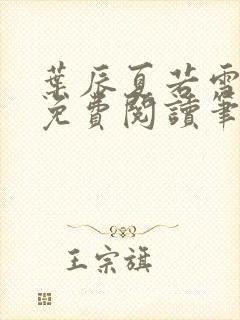 葉辰夏若雪
免費閱讀筆
王宗旗